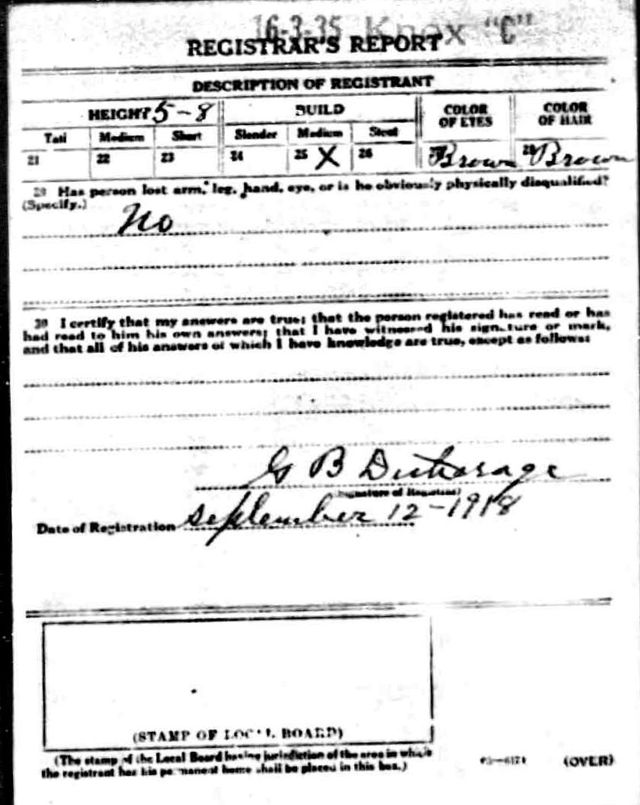 16-3-35 Knox "C"
REGISTRAR'S REPORT
DESCRIPTION OF REGISTRANT
HEIGHT 5-8 BUILD COLOR OF EYES COLOR OF HAIR
Tall Medium Short Slender Medium Stout
21 22 23 24 25 X 26 27 Brown 28 Brown
29 Has person lost arm, leg, hand, eye, or is he obviously physically disqualified?
(Specify.)
No
30 I certify that my answers are true; that the person registered has read or has
had read to him his own answers; that I have witnessed his signature or mark,
and that all of his answers of which I have knowledge are true, except as follows:
G B
(Signature of Registrar)
Date of Registration September 12-1918
(STAMP OF LOCAL BOARD)
(The stamp of the Local Board having jurisdiction of the area in which
the registrant has his permanent home shall be placed in this box.)
(OVER)